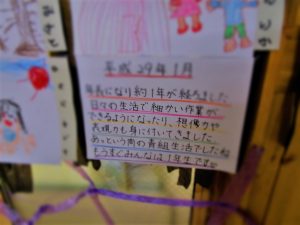 平成29年1月
年長になり約1年が経ちました
日々の生活で細かい作業が
できるようになったり、想像力や
表現力も身に付いてきました
あっという間の青組生活でしたね
もうすぐみんなは1年生です